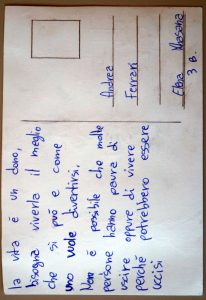 la vita é un dono,
bisogna viverla il meglio
che si può e come
uno vuole divertirsi.
Non é possibile che molte
persone hanno paura di
uscire oppure di vivere
perché potrebbero essere
uccisi
Andrea
Ferrari
Elba
3 B.